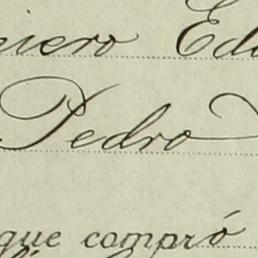 niero Ed
Pedro
que compró